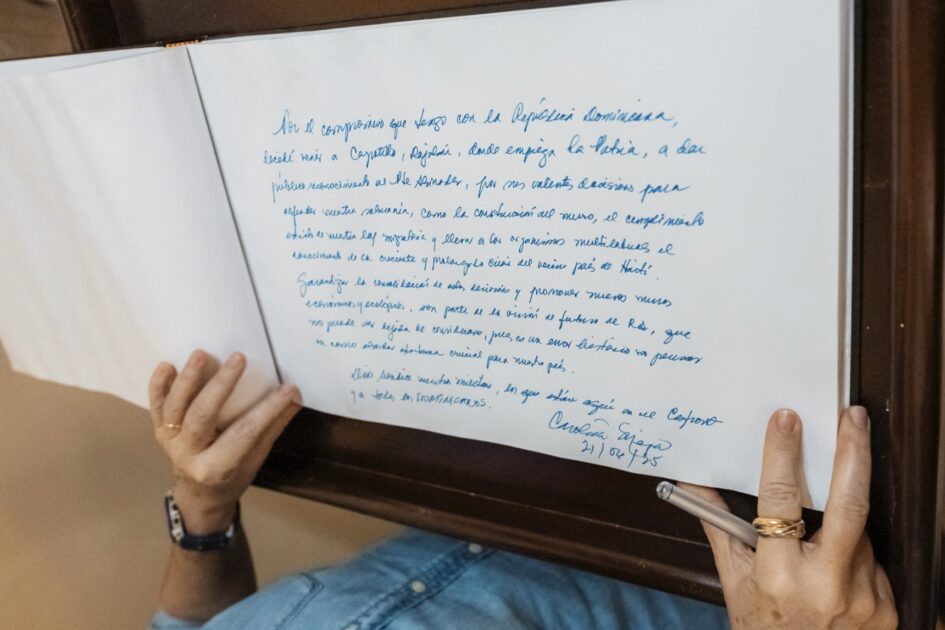 Por el compromiso que tengo con la República Dominicana,
decidí venir a Capotillo, Dajabón, donde empieza la Patria, a dar
público reconocimiento al Pte Abinader, por sus valientes decisiones para
defender nuestra soberanía, como la construcción del muro, el cumplimiento
de nuestra ley migratoria y llevar a los organismos multilaterales el
conocimiento de la creciente y prolongada crisis del vecino país de Haití.
Garantizar la consolidación de estas decisiones y promover nuevos muros
económicos y ecológicos, son parte de la visión de futuro de RD, que
no puede ser dejada de considerarse, pues es un error histórico no pensar
en como abordar este tema crucial para nuestro país.
Dios bendiga nuestra misión, los que están aquí en el
y a todos los DOMINICANOS.
Carolina Mejía
21/06/25